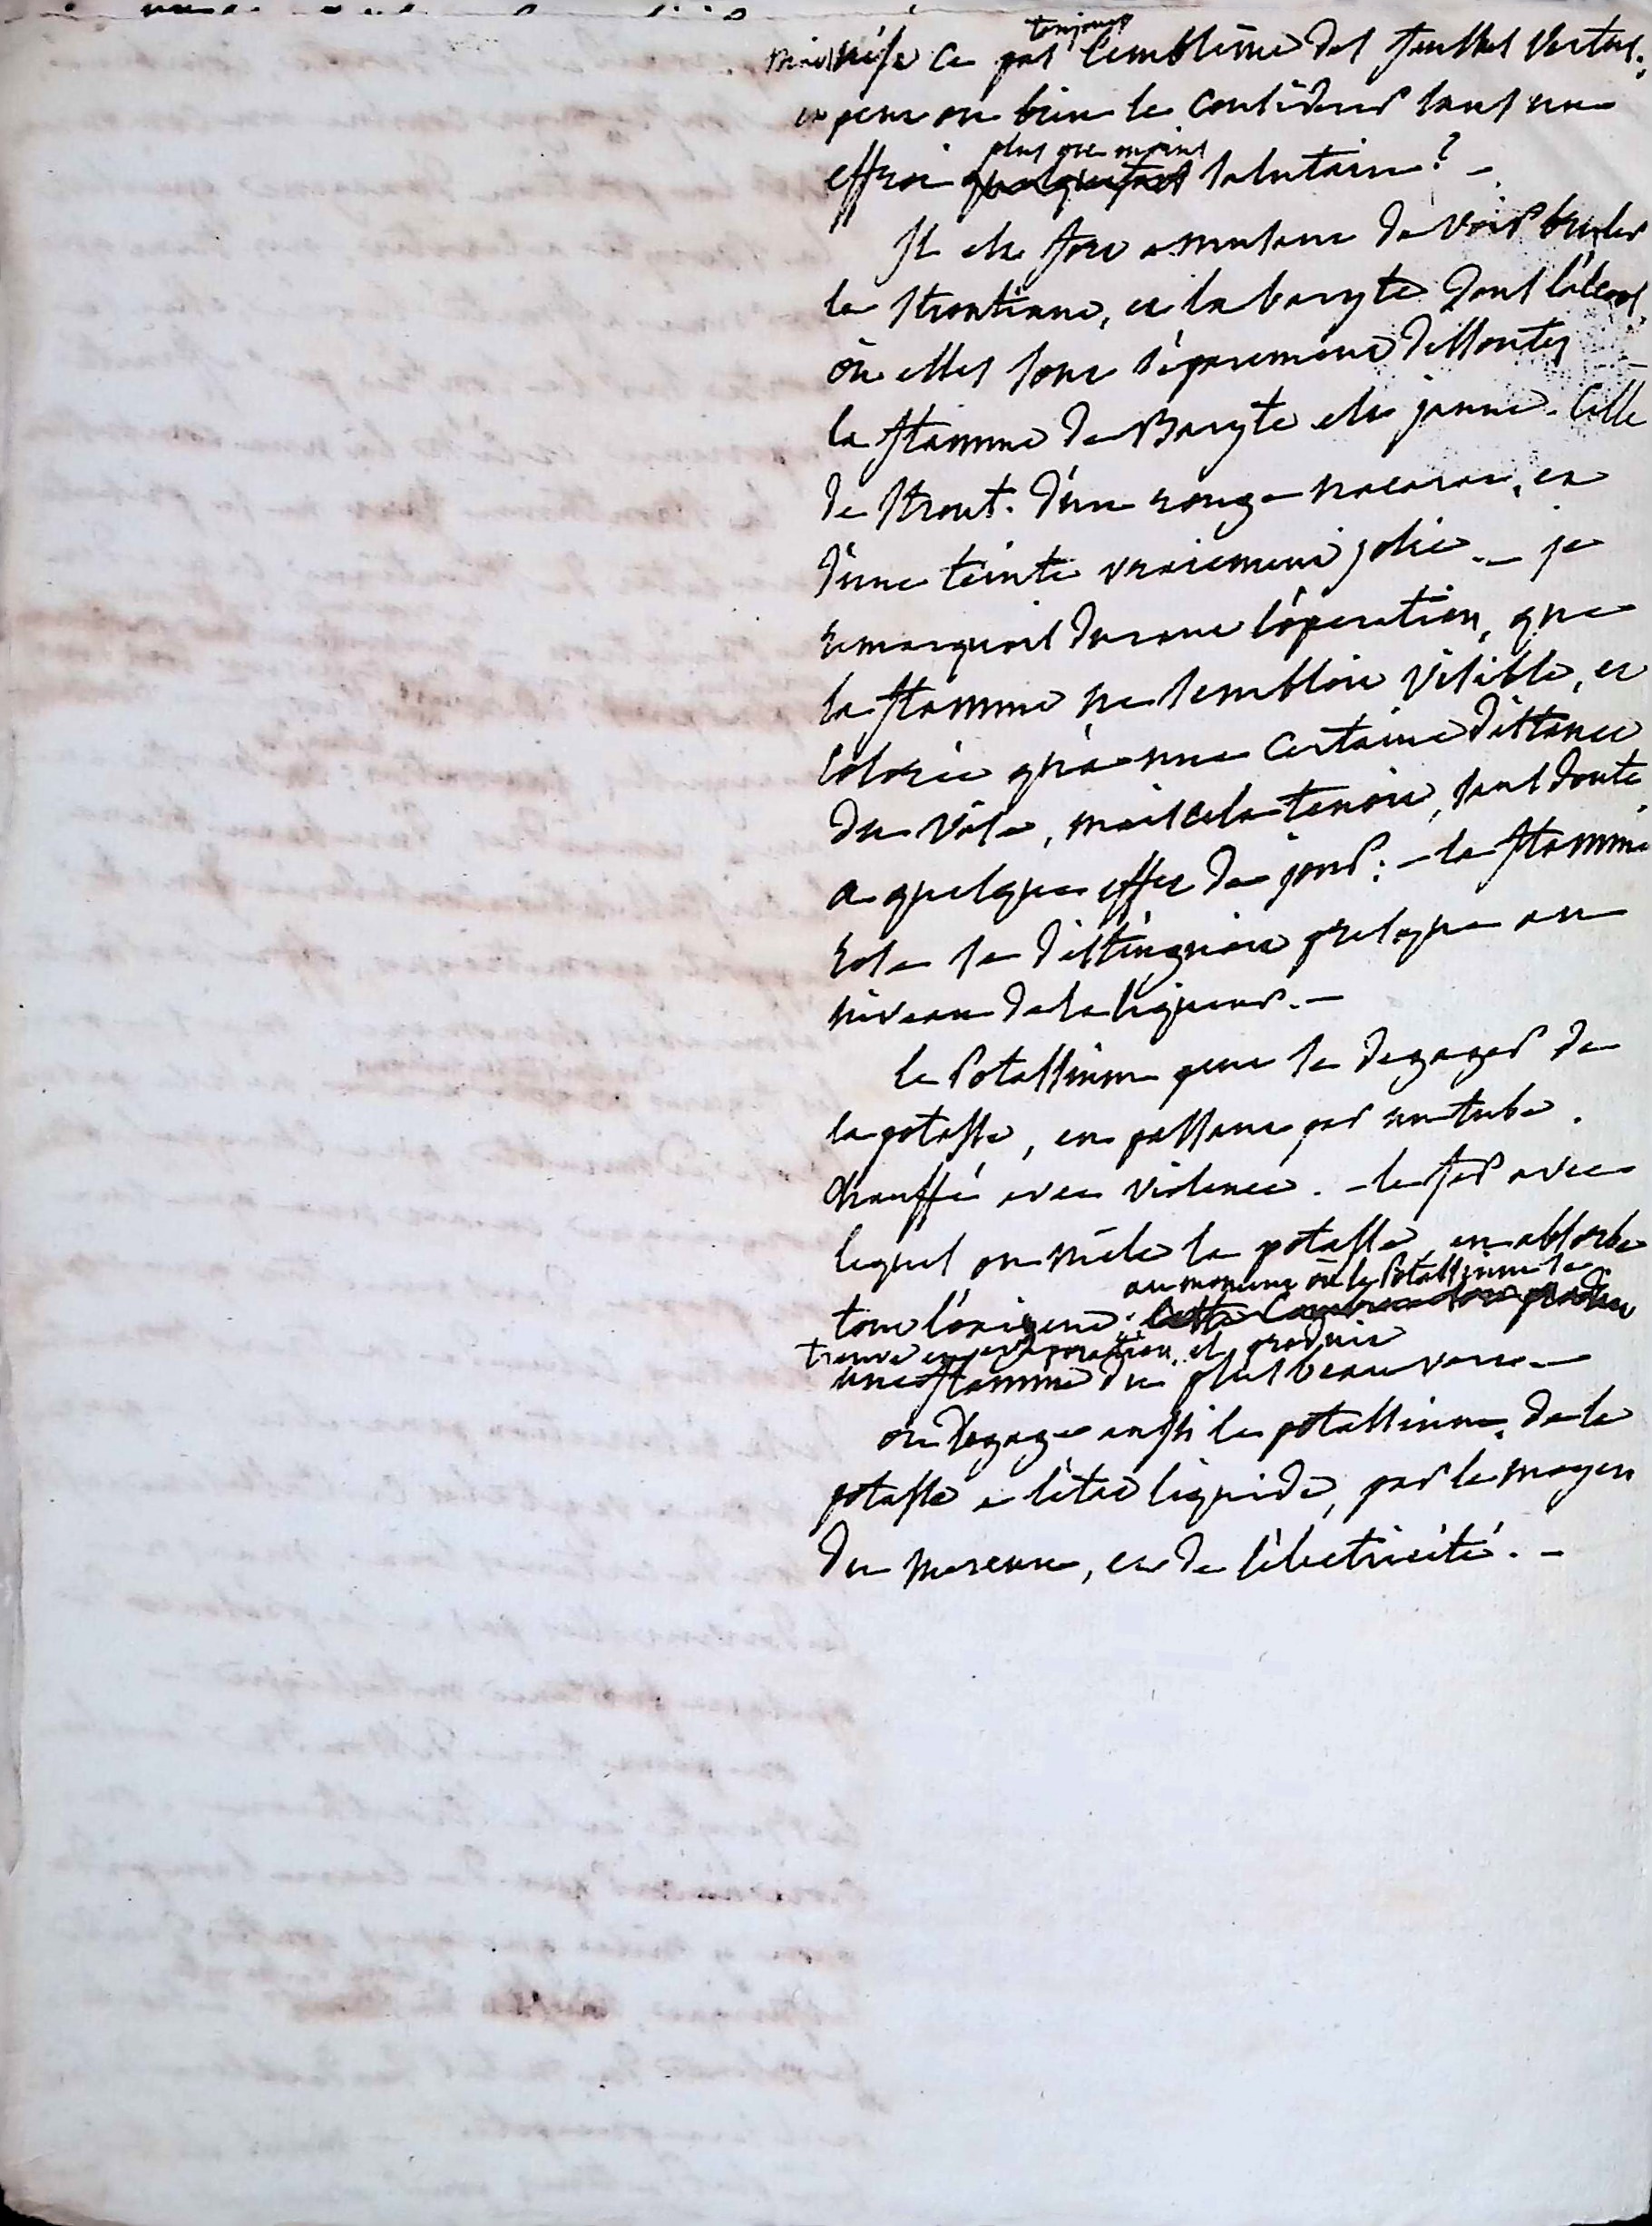 toujours
mais n'est ce pas l'emblême des fausses vertus.
et peut on bien le considerer sans un
plus ou moins
effroi quelquefois salutaire? –
Il est fort amusant de voir bruler
la strontiane, et la baryte dans l'alcool,
où elles sont séparement dissoutes
la flamme de Baryte est jaune. Celle
de Stront. d'un rouge nacarat, et
d'une teinte vraiement jolie. – je
remarquois durant l'operation, que
la flamme ne sembloit visible, et
colorée qu'a une certaine distance
du vase, mais cela tenoit, sans doute
a quelque effet de jour: – la flamme
rose se distinguoit presque au
niveau de la liqueur. –
le Potassium peut se degager de
la potasse, en passant par un tube
chauffé avec violence. – le fer avec
lequel on mêle la potasse, en absorbe
au moment où le Potassium se
tout l'oxigene. cette
trouve en evaporation, et produit
une flamme du plus beau vert –
on degage aussi le potassium, de la
potasse a l'état liquide, par le moyen
du mercure, et de l'électricité. –